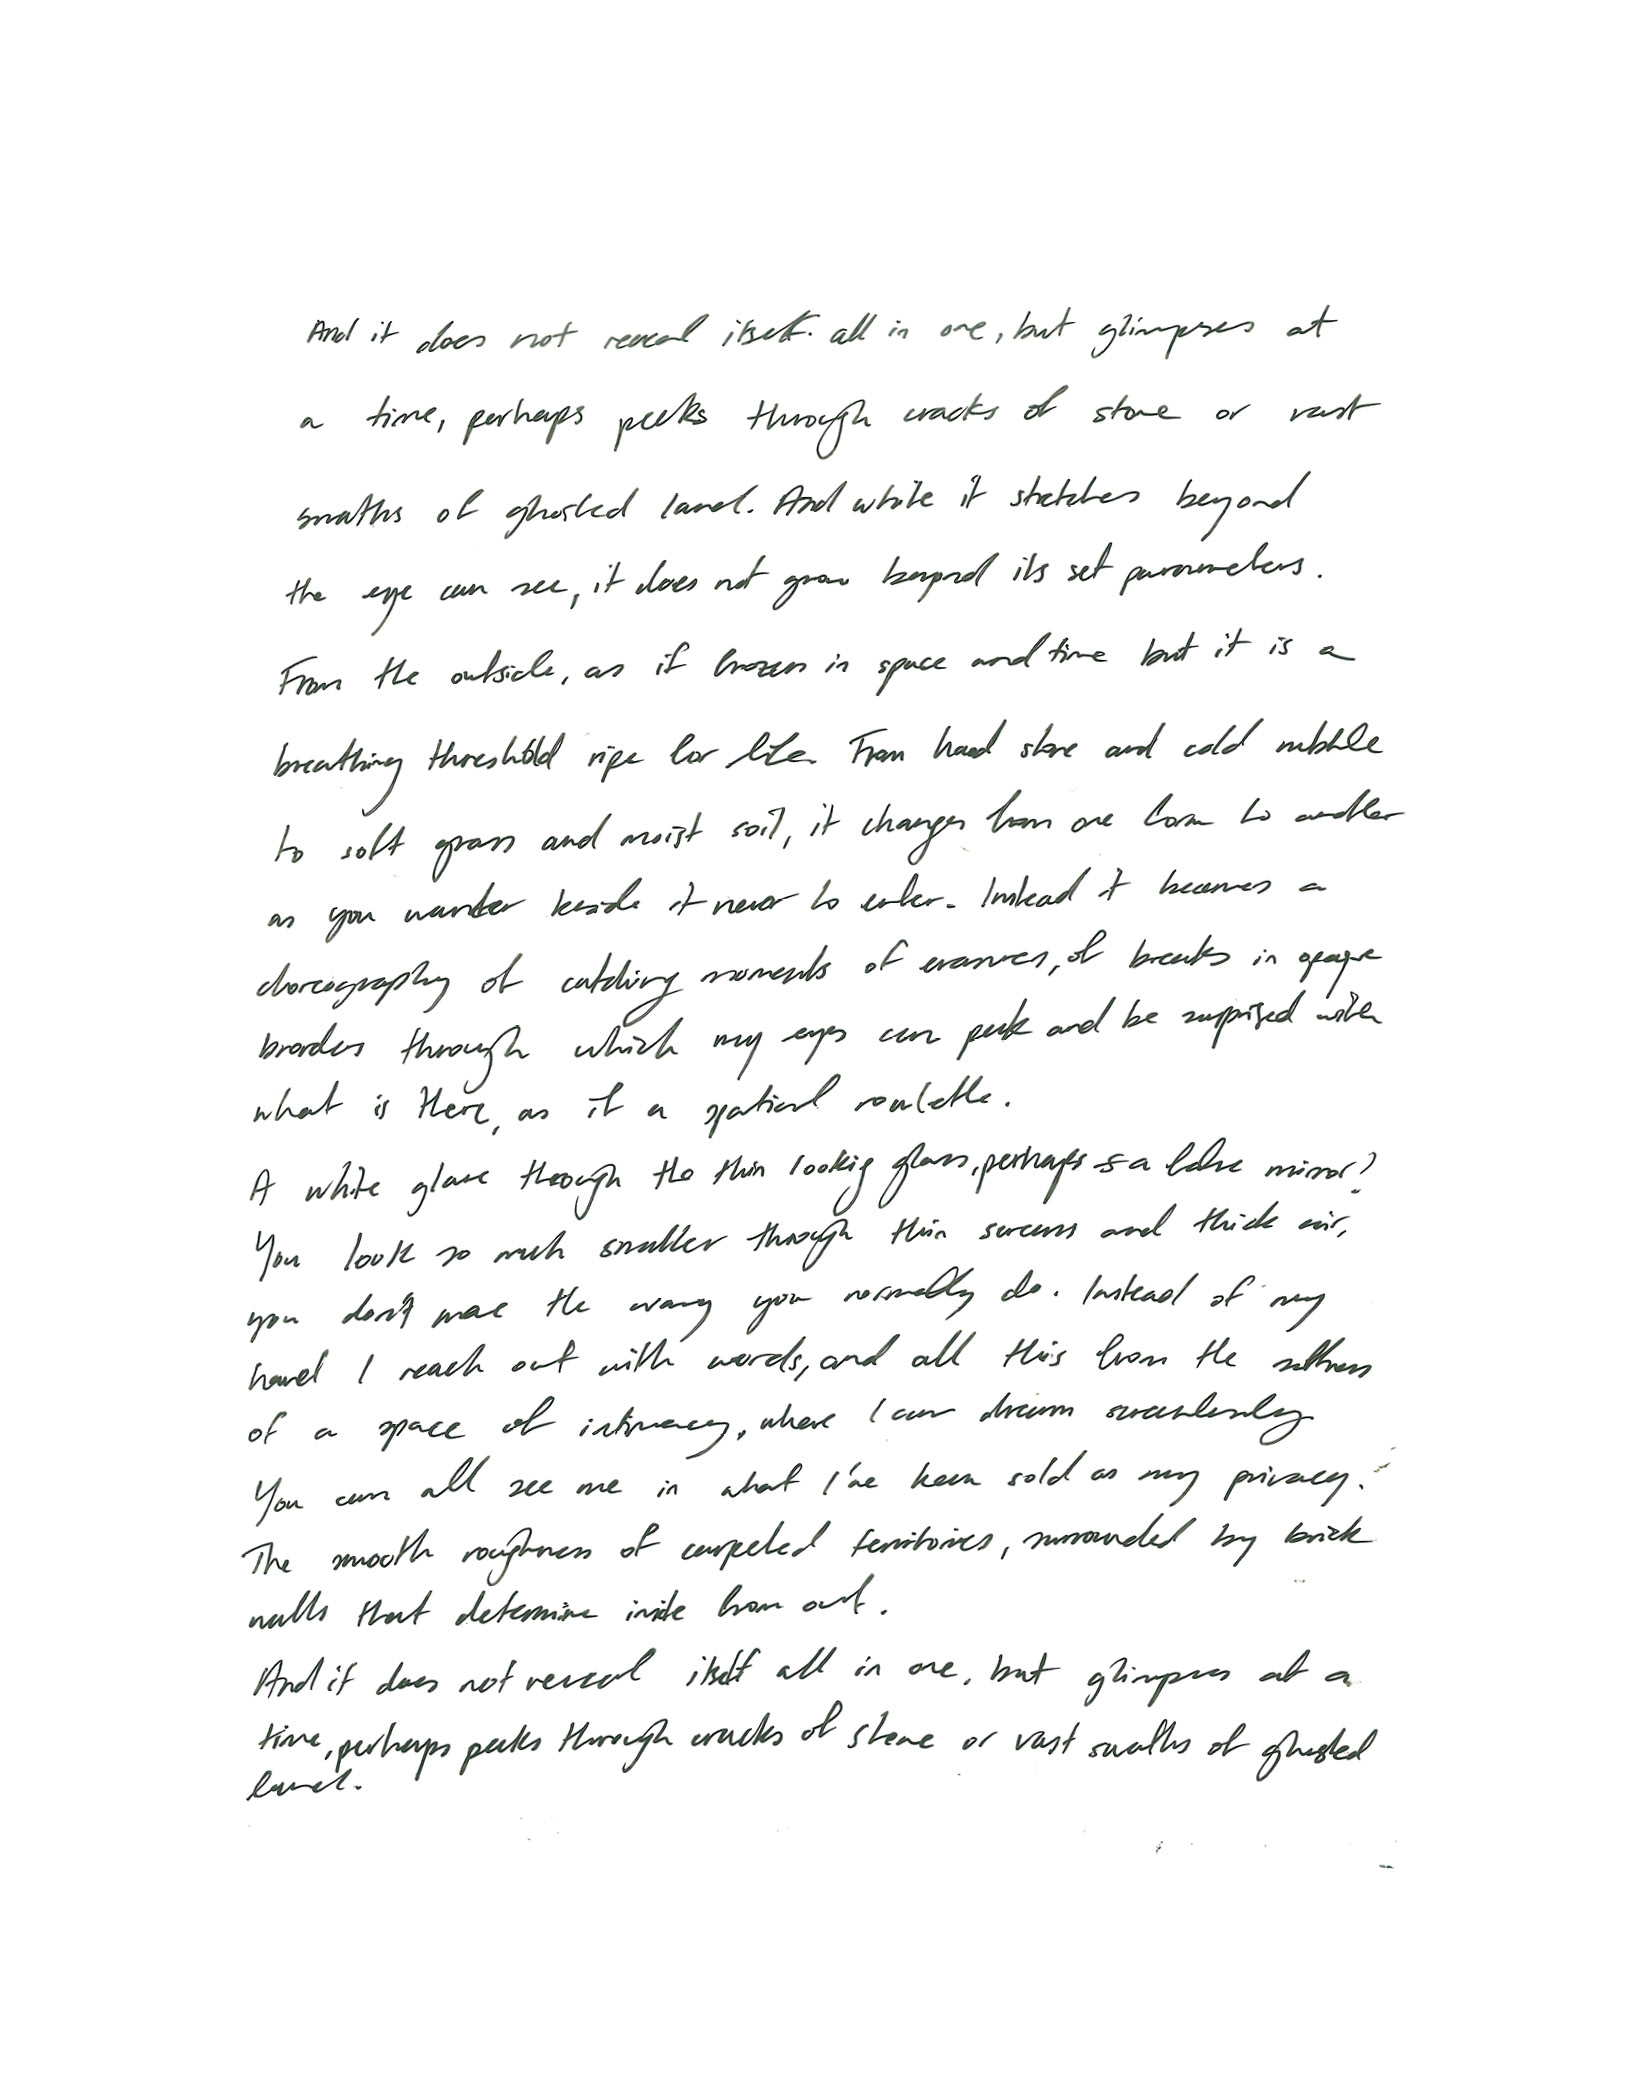 And it does not reveal itself. all in one, but glimpses at
a time, perhaps peeks through cracks of stone or vast
swaths of ghosted land. And while it stretches beyond
the eye can see, it does not grow beyond its set parameters.
From the outside, as if frozen in space and time but it is a
breathing threshold ripe for life. From hard stone and cold rubble
to soft grass and moist soil, it changes from one form to another
as you wander beside it never to enter. Instead it becomes a
choreography of catching moments of erasures, of breaks in opaque
brorders through which my eyes can peek and be suprised with
what is there, as if a spatial roulette.
A white glare through the thin looking glass, perhaps a false mirror?
You look so much smaller through thin screens and thick air,
you don't move the way you normally do. Instead of my
hand I reach out with words, and all this from the softness
of a space of intimacy, where I can dream
You can all see me in what I've been sold as my privacy.
The smooth roughness of carpeted territories, surrounded by brick
walls that determine inside from out.
And it does not reveal itself all in one, but glimpses at a
time, perhaps peeks through cracks of stone or vast swaths of ghosted
land.